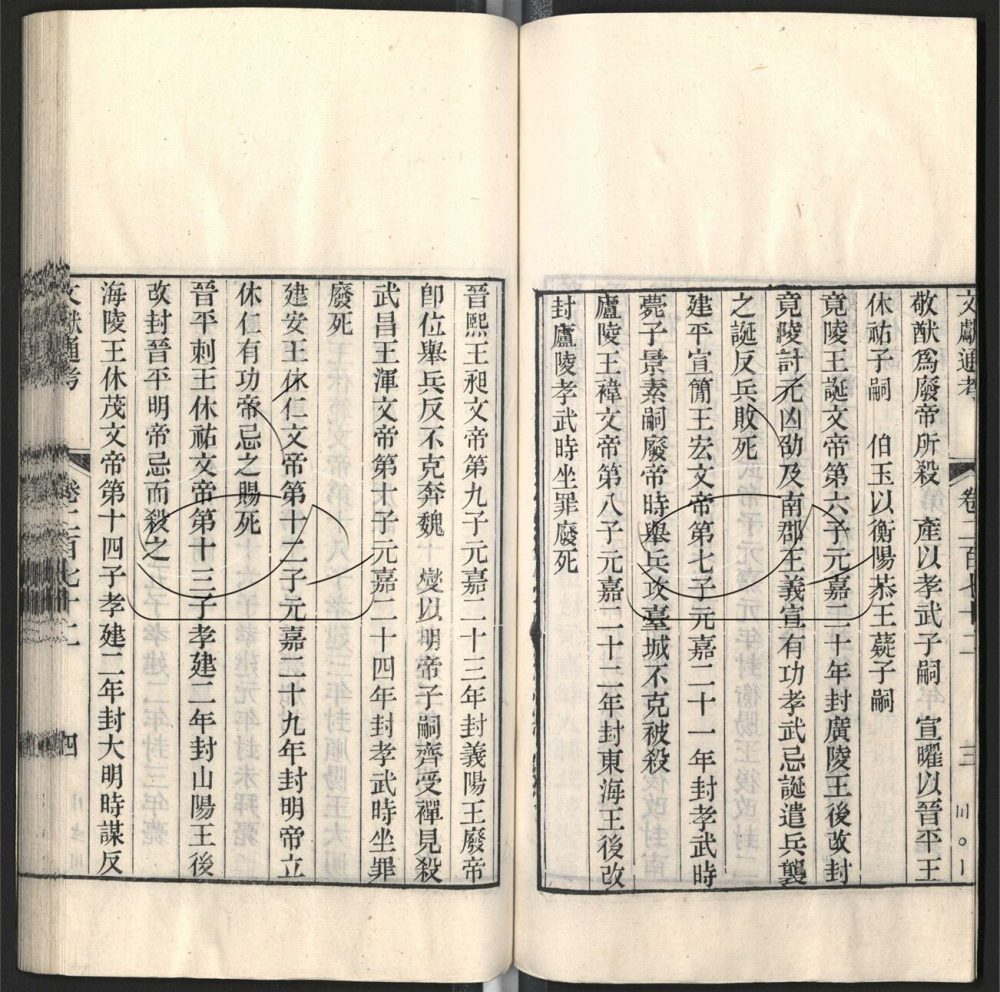 文獻通考 卷二百七十二 三
敬猷爲廢帝所殺 產以孝武子嗣 宣曜以晉平王
休祐子嗣 伯玉以衡陽恭王嶷子嗣
竟陵王誕文帝第六子元嘉二十年封廣陵王後改封
竟陵討元凶劭及南郡王義宣有功孝武忌誕遣兵襲
之誕反兵敗死
建平宣簡王宏文帝第七子元嘉二十一年封孝武時
薨子景素嗣廢帝時舉兵攻臺城不克被殺
廬陵王禕文帝第八子元嘉二十二年封東海王後改
封廬陵孝武時坐罪廢死
晉熙王昶文帝第九子元嘉二十三年封義陽王廢帝
卽位舉兵反不克奔魏 燮以明帝子嗣齊受禪見殺
武昌王渾文帝第十子元嘉二十四年封孝武時坐罪
廢死
建安王休仁文帝第十二子元嘉二十九年封明帝立
休仁有功帝忌之賜死
晉平刺王休祐文帝第十三子孝建二年封山陽王後
改封晉平明帝忌而殺之
海陵王休茂文帝第十四子孝建二年封大明時謀反
文獻通考 卷二百七十二 四